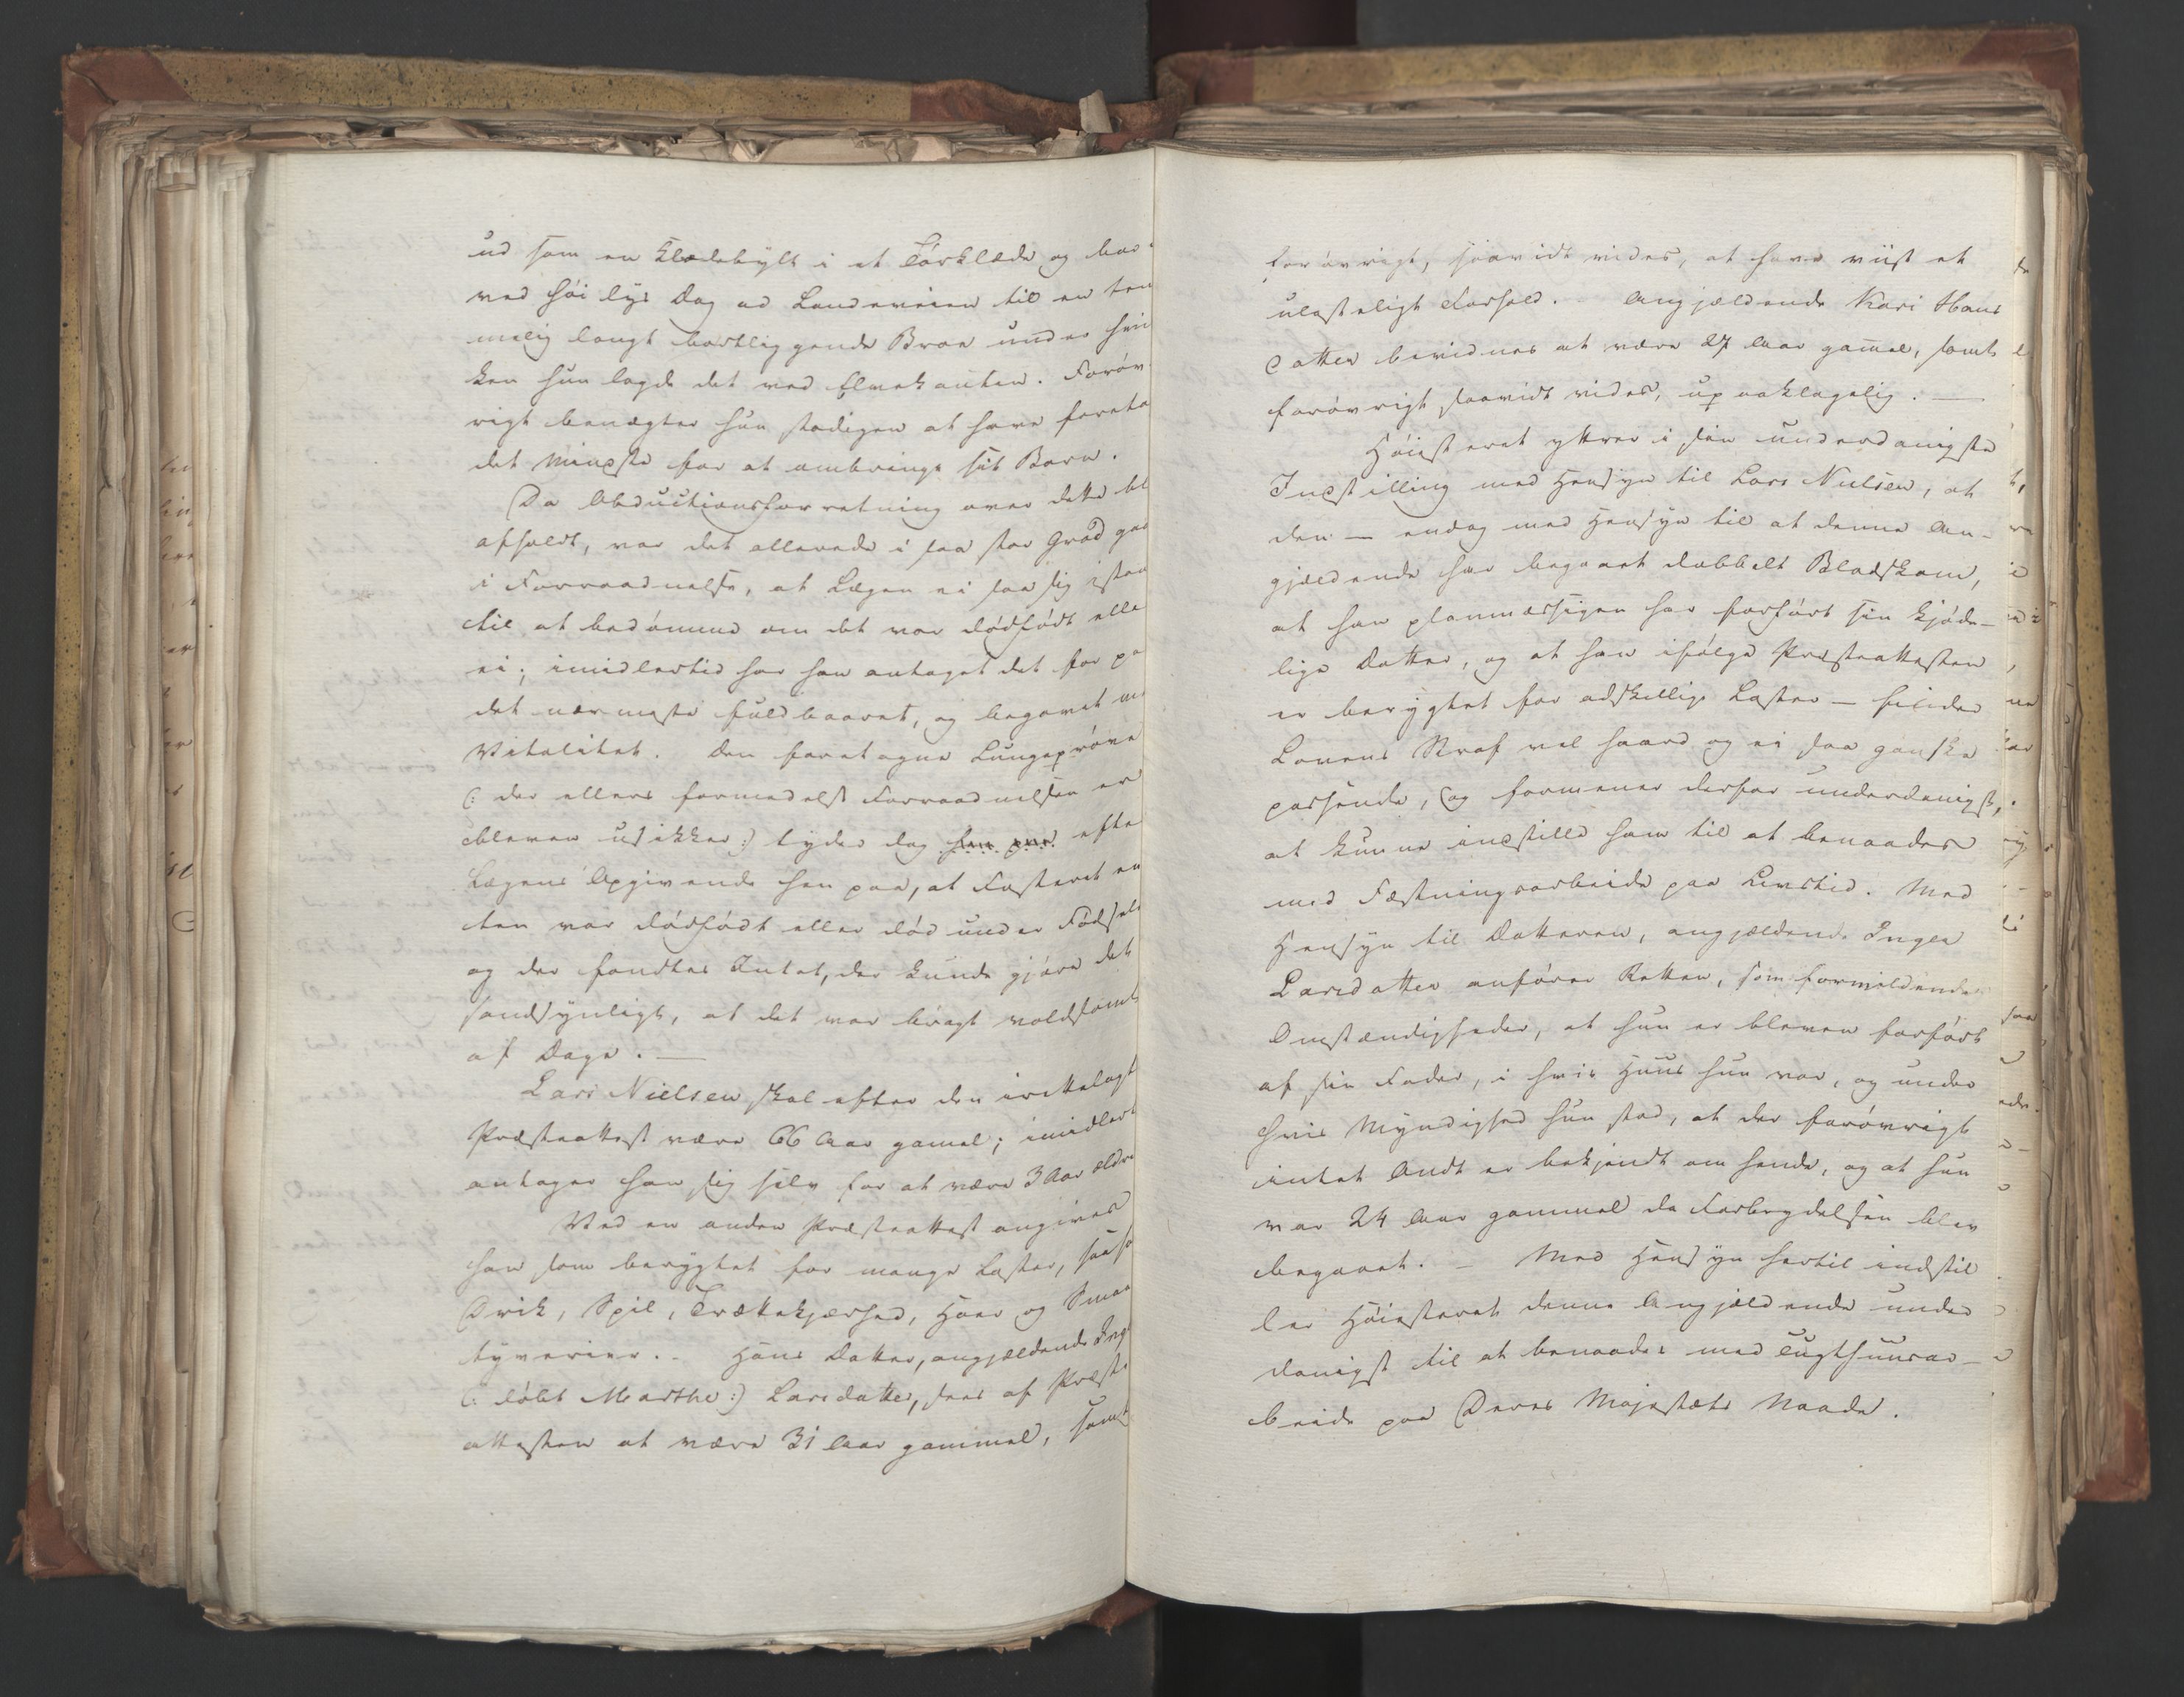 ud som en Klædebylt i et Forklæde og bar
ved høi lys Dag ad Landeveien til en tem
melig langt bortliggende Broe under hvil
ken hun lagde det ved Elvekanten. Forøv
rigt benægter hun stadigen at have foreta
det mindste for at ombringe sit Barn.
Da Obductionsforretning over dette bl
afholdt, var det allerede i saa stor Grad gaa
i Forraadnelse, at Lægen ei saa sig istan
til at bedømme om det var dødfødt elle
ei; imidlertid har han antaget det for pa
det nærmeste fuldbaaret, og begavet me
Vitalitet. Den foretagne Lungeprøve
(: der ellers formedelst Forraadnelsen er
bleven usikker:) tyder dog efte
Lægens Opgivende hen paa, at Fosteret en
ten var dødfødt eller død under Fødsele
og der fandtes Intet, der kunde gjøre det
sandsynligt, at det var bragt voldsomt
af Dage. —
Lars Nielsen skal efter den irettelagt
Præsteattest være 66 Aar gamel; imidlert
antager han sig selv for at være 3 Aar ældre
Ved en anden Præsteattest angives
han som berygtet for mange Laster, saaso
Drik, Spil, Trættekjærhed, Hoer og Smaa
tyverier. - Hans Datter, angjældende Inge
(: døbt Marthe:) Larsdatter, sees af Præste
attesten at være 31 Aar gammel, samt
forøvrigt, saavidt vides, at have viist et
ulasteligt Forhold. - Angjældende Kari Hans
datter bevidnes at være 27 Aar gamel, samt
forøvrigt saavidt vides, upaaklagelig. —
Høiesteret yttrer i sin underdanigste
Indstilling med Hensyn til Lars Nielsen, at
den — endog med Hensyn til at denne An-
gjældende har begaaet dobbelt Blodskam,
at han planmæssigen har forført sin kjøde-
lige Datter, og at han ifølge Præsteattesten
er berygtet for adskillige Laster — finder
Lovens Straf vel haard og ei saa ganske
passende, og formener derfor underdanigst,
at kunne indstille ham til at benaades
med Fæstningsarbeide paa Livstid. Med
Hensyn til Datteren, angjældende Inger
Larsdatter anfører Retten, som formildende
Omstændigheder, at hun er bleven forført
af sin Fader, i hvis Huus hun var, og under
hvis Myndighed hun stod, at der forøvrigt
intet Ondt er bekjendt om hende, og at hun
var 24 Aar gammel da Forbrydelsen blev
begaaet. - Med Hensyn hertil indstil
ler Høiesteret denne Angjældende under
danigst til at benaades med Tugthuusar-
beide paa Deres Majestæts Naade.